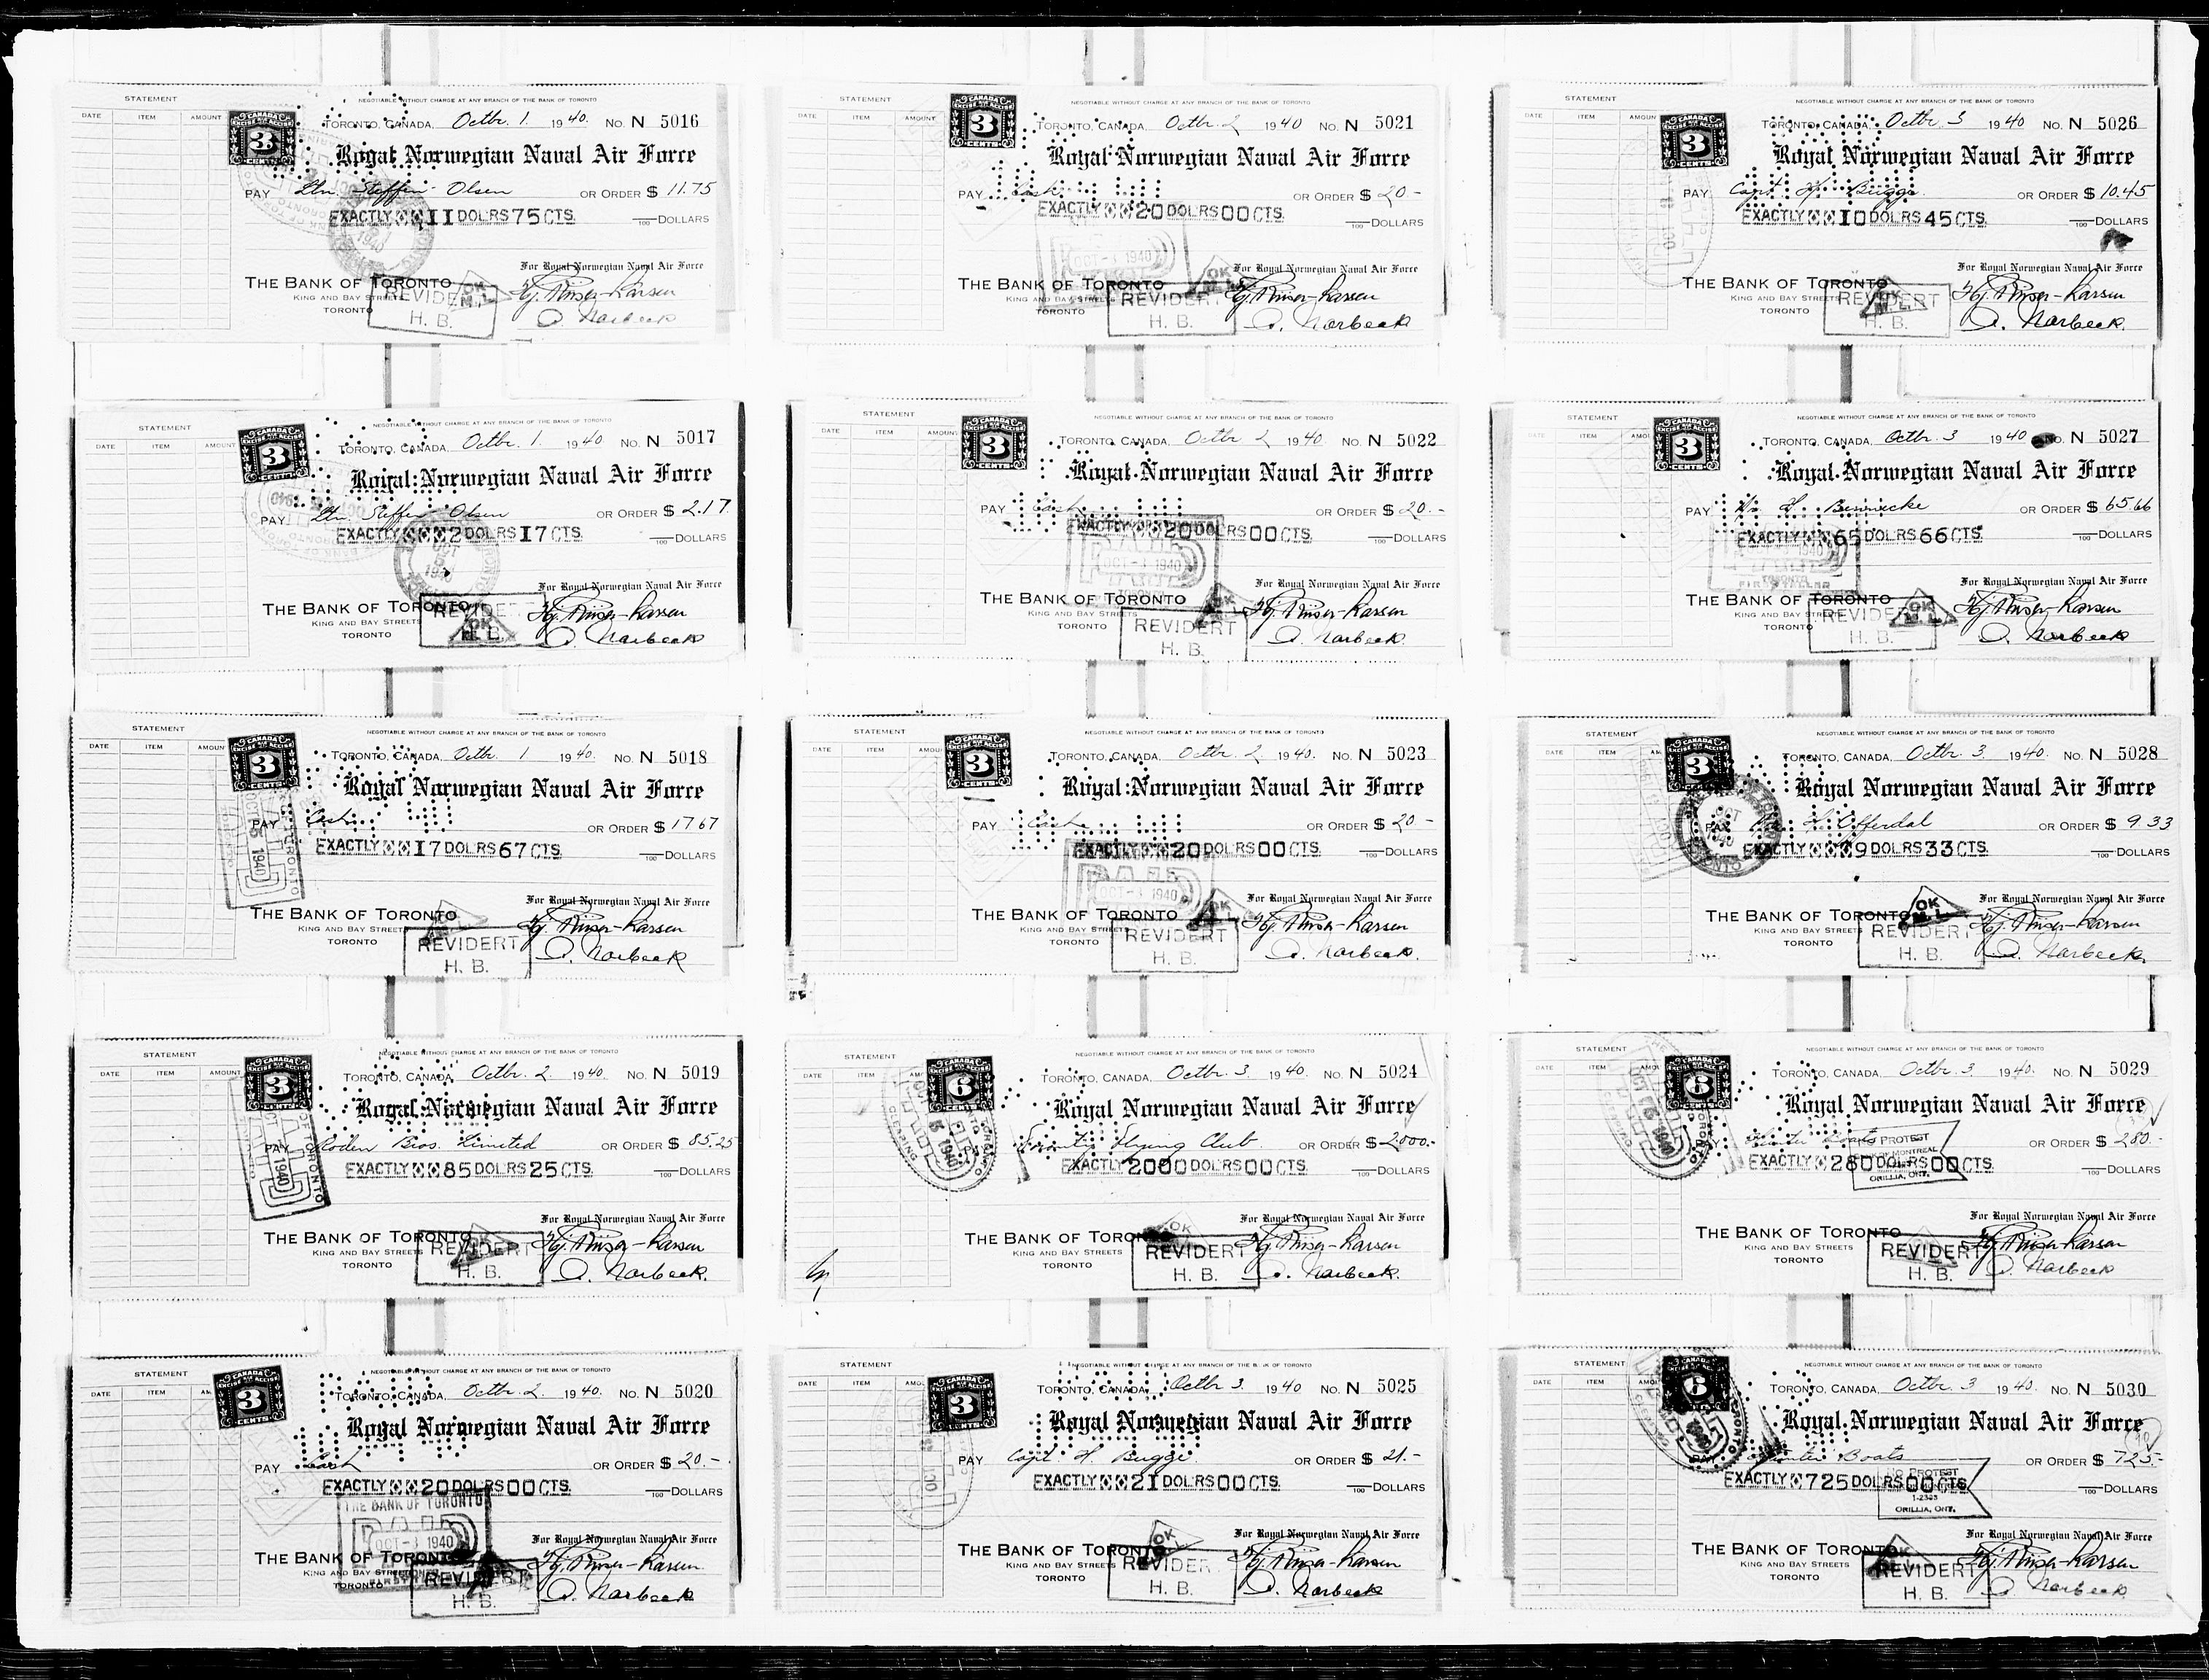 STATEMENT
DATE ITEM AMOUNT
CANADA
EXCISE ACCISE
3
CENTS
NEGOTIABLE WITHOUT CHARGE AT ANY BRANCH OF THE BANK OF TORONTO
TORONTO, CANADA, Octbr. 1. 1940. No. N 5016
Royal Norwegian Naval Air Force
PAY Ltn. Steffen Olsen OR ORDER $ 11.75
EXACTLY 11 DOLRS 75 CTS. 100 DOLLARS
For Royal Norwegian Naval Air Force
THE BANK OF TORONTO
KING AND BAY STREETS
TORONTO
REVIDERT
H. B.
OK
Hj. Riiser-Larsen
O. Norbeck
STATEMENT
DATE ITEM AMOUNT
CANADA
EXCISE ACCISE
3
CENTS
NEGOTIABLE WITHOUT CHARGE AT ANY BRANCH OF THE BANK OF TORONTO
TORONTO, CANADA, Octbr. 1 1940. No. N 5017
Royal Norwegian Naval Air Force
PAY Ltn. Steffen Olsen OR ORDER $ 2.17
EXACTLY 2 DOLRS 17 CTS. 100 DOLLARS
For Royal Norwegian Naval Air Force
THE BANK OF TORONTO
KING AND BAY STREETS
TORONTO
REVIDERT
OK
Hj. Riiser-Larsen
O. Norbeck
STATEMENT
DATE ITEM AMOUNT
CANADA
EXCISE ACCISE
3
CENTS
NEGOTIABLE WITHOUT CHARGE AT ANY BRANCH OF THE BANK OF TORONTO
TORONTO, CANADA, Octbr. 1 1940. No. N 5018
Royal Norwegian Naval Air Force
PAY Cash OR ORDER $ 17 67
EXACTLY 17 DOLRS 67 CTS. 100 DOLLARS
For Royal Norwegian Naval Air Force
THE BANK OF TORONTO
KING AND BAY STREETS
TORONTO
REVIDERT
H. B.
Hj. Riiser-Larsen
O. Norbeck
STATEMENT
DATE ITEM AMOUNT
CANADA
EXCISE ACCISE
3
CENTS
NEGOTIABLE WITHOUT CHARGE AT ANY BRANCH OF THE BANK OF TORONTO
TORONTO, CANADA, Octbr. 2. 1940. No. N 5019
Royal Norwegian Naval Air Force
PAY Roden Bros. Limited OR ORDER $ 85.25
EXACTLY 85 DOLRS 25 CTS. 100 DOLLARS
For Royal Norwegian Naval Air Force
THE BANK OF TORONTO
KING AND BAY STREETS
TORONTO
REVIDERT
H. B.
Hj. Riiser-Larsen
O. Norbeck.
STATEMENT
DATE ITEM
CANADA
EXCISE ACCISE
3
CENTS
NEGOTIABLE WITHOUT CHARGE AT ANY BRANCH OF THE BANK OF TORONTO
TORONTO, CANADA, Octbr. 2. 1940. No. N 5020
Royal Norwegian Naval Air Force
PAY Cash OR ORDER $ 20.-
EXACTLY 20 DOLRS 00 CTS. 100 DOLLARS
THE BANK OF TORONTO
PAID
OCT-3 1940
For Royal Norwegian Naval Air Force
THE BANK OF TORONTO
KING AND BAY STREETS
TORONTO
REVIDERT
H. B.
Hj. Riiser-Larsen
O. Norbeck
STATEMENT
DATE ITEM AMOUNT
CANADA
EXCISE ACCISE
3
CENTS
NEGOTIABLE WITHOUT CHARGE AT ANY BRANCH OF THE BANK OF TORONTO
TORONTO, CANADA, Octbr. 2 1940 No. N 5021
Royal Norwegian Naval Air Force
PAY Cash OR ORDER $ 20-
EXACTLY 20 DOLRS 00 CTS. 100 DOLLARS
OCT-3 1940
For Royal Norwegian Naval Air Force
THE BANK OF TORONTO
KING AND BAY STREETS
TORONTO
REVIDERT
H. B.
OK
Hj. Riiser-Larsen
O. Norbeck
STATEMENT
DATE ITEM AMOUNT
CANADA
EXCISE ACCISE
3
CENTS
NEGOTIABLE WITHOUT CHARGE AT ANY BRANCH OF THE BANK OF TORONTO
TORONTO, CANADA, Octbr 2 1940. No. N 5022
Royal Norwegian Naval Air Force
PAY Cash OR ORDER $ 20.-
EXACTLY 20 DOLRS 00 CTS. 100 DOLLARS
OCT-3 1940
For Royal Norwegian Naval Air Force
THE BANK OF TORONTO
KING AND BAY STREETS
TORONTO
REVIDERT
H. B.
Hj. Riiser-Larsen
O. Norbeck.
STATEMENT
DATE ITEM AMOUNT
CANADA
EXCISE ACCISE
3
CENTS
NEGOTIABLE WITHOUT CHARGE AT ANY BRANCH OF THE BANK OF TORONTO
TORONTO, CANADA, Octbr. 2. 1940. No. N 5023
Royal Norwegian Naval Air Force
PAY Cash OR ORDER $ 20.-
EXACTLY 20 DOLRS 00 CTS. 100 DOLLARS
PAID
OCT-3 1940
For Royal Norwegian Naval Air Force
THE BANK OF TORONTO
KING AND BAY STREETS
TORONTO
REVIDERT
H. B.
Hj. Riiser-Larsen
O. Norbeck.
STATEMENT
DATE ITEM AMOUNT
CANADA
EXCISE ACCISE
6
CENTS
NEGOTIABLE WITHOUT CHARGE AT ANY BRANCH OF THE BANK OF TORONTO
TORONTO, CANADA, Octbr. 3. 1940. No. N 5024
Royal Norwegian Naval Air Force
Toronto Flying Club. OR ORDER $ 2000.-
EXACTLY 2000 DOLRS 00 CTS. 100 DOLLARS
For Royal Norwegian Naval Air Force
THE BANK OF TORONTO
KING AND BAY STREETS
TORONTO
REVIDERT
H. B.
OK
Hj. Riiser-Larsen
O. Norbeck.
STATEMENT
DATE ITEM AMOUNT
CANADA
EXCISE ACCISE
3
CENTS
NEGOTIABLE WITHOUT CHARGE AT ANY BRANCH OF THE BANK OF TORONTO
TORONTO, CANADA, Octbr. 3. 1940 No. N 5025
Royal Norwegian Naval Air Force
PAY Capt. H. Bugge. OR ORDER $ 21.-
EXACTLY 21 DOLRS 00 CTS. 100 DOLLARS
For Royal Norwegian Naval Air Force
THE BANK OF TORONTO
KING AND BAY STREETS
TORONTO
REVIDERT
H. B.
OK
Hj. Riiser-Larsen
O. Norbeck
STATEMENT
DATE ITEM AMOUNT
CANADA
EXCISE ACCISE
3
CENTS
NEGOTIABLE WITHOUT CHARGE AT ANY BRANCH OF THE BANK OF TORONTO
TORONTO, CANADA, Octbr. 3 1940 No. N 5026
Royal Norwegian Naval Air Force
PAY Capt. H. Bugge. OR ORDER $ 10.45
EXACTLY 10 DOLRS 45 CTS. 100 DOLLARS
For Royal Norwegian Naval Air Force
THE BANK OF TORONTO
KING AND BAY STREETS
TORONTO
REVIDERT
H. B.
Hj. Riiser-Larsen
O. Norbeck.
STATEMENT
DATE ITEM
CANADA
EXCISE ACCISE
3
CENTS
NEGOTIABLE WITHOUT CHARGE AT ANY BRANCH OF THE BANK OF TORONTO
TORONTO, CANADA, Octbr. 3 1940 No. N 5027
Royal Norwegian Naval Air Force
PAY H. Bennecke OR ORDER $ 65.66
EXACTLY 65 DOLRS 66 CTS. 100 DOLLARS
For Royal Norwegian Naval Air Force
THE BANK OF TORONTO
KING AND BAY STREETS
TORONTO
REVIDERT
H. B.
OK
Hj. Riiser-Larsen
O. Norbeck
STATEMENT
DATE ITEM
CANADA
EXCISE ACCISE
3
CENTS
NEGOTIABLE WITHOUT CHARGE AT ANY BRANCH OF THE BANK OF TORONTO
TORONTO, CANADA, Octbr. 3. 1940. No. N 5028
Royal Norwegian Naval Air Force
PAY Offerdal OR ORDER $ 9 33
EXACTLY 9 DOLRS 33 CTS. 100 DOLLARS
For Royal Norwegian Naval Air Force
THE BANK OF TORONTO
KING AND BAY STREETS
TORONTO
REVIDERT
H. B.
OK
Hj. Riiser-Larsen
O. Norbeck.
STATEMENT
DATE ITEM AMOUNT
CANADA
6
NEGOTIABLE WITHOUT CHARGE AT ANY BRANCH OF THE BANK OF TORONTO
TORONTO, CANADA, Octbr. 3 1940. No. N 5029
Royal Norwegian Naval Air Force
Hunter Boats OR ORDER $ 280.-
PROTEST
OF MONTREAL
ORILLIA, ONT.
EXACTLY 280 DOLRS 00 CTS. 100 DOLLARS
For Royal Norwegian Naval Air Force
THE BANK OF TORONTO
KING AND BAY STREETS
TORONTO
REVIDERT
H. B.
Hj. Riiser-Larsen
O. Norbeck
STATEMENT
DATE ITEM
CANADA
6
NEGOTIABLE WITHOUT CHARGE AT ANY BRANCH OF THE BANK OF TORONTO
TORONTO, CANADA, Octbr. 3 1940. No. N 5030
Royal Norwegian Naval Air Force
Hunter Boats OR ORDER $ 725.-
EXACTLY 725 DOLRS 00 CTS. 100 DOLLARS
PROTEST
ORILLIA, ONT.
For Royal Norwegian Naval Air Force
THE BANK OF TORONTO
KING AND BAY STREETS
TORONTO
REVIDERT
H. B.
Hj. Riiser-Larsen
O. Norbeck.